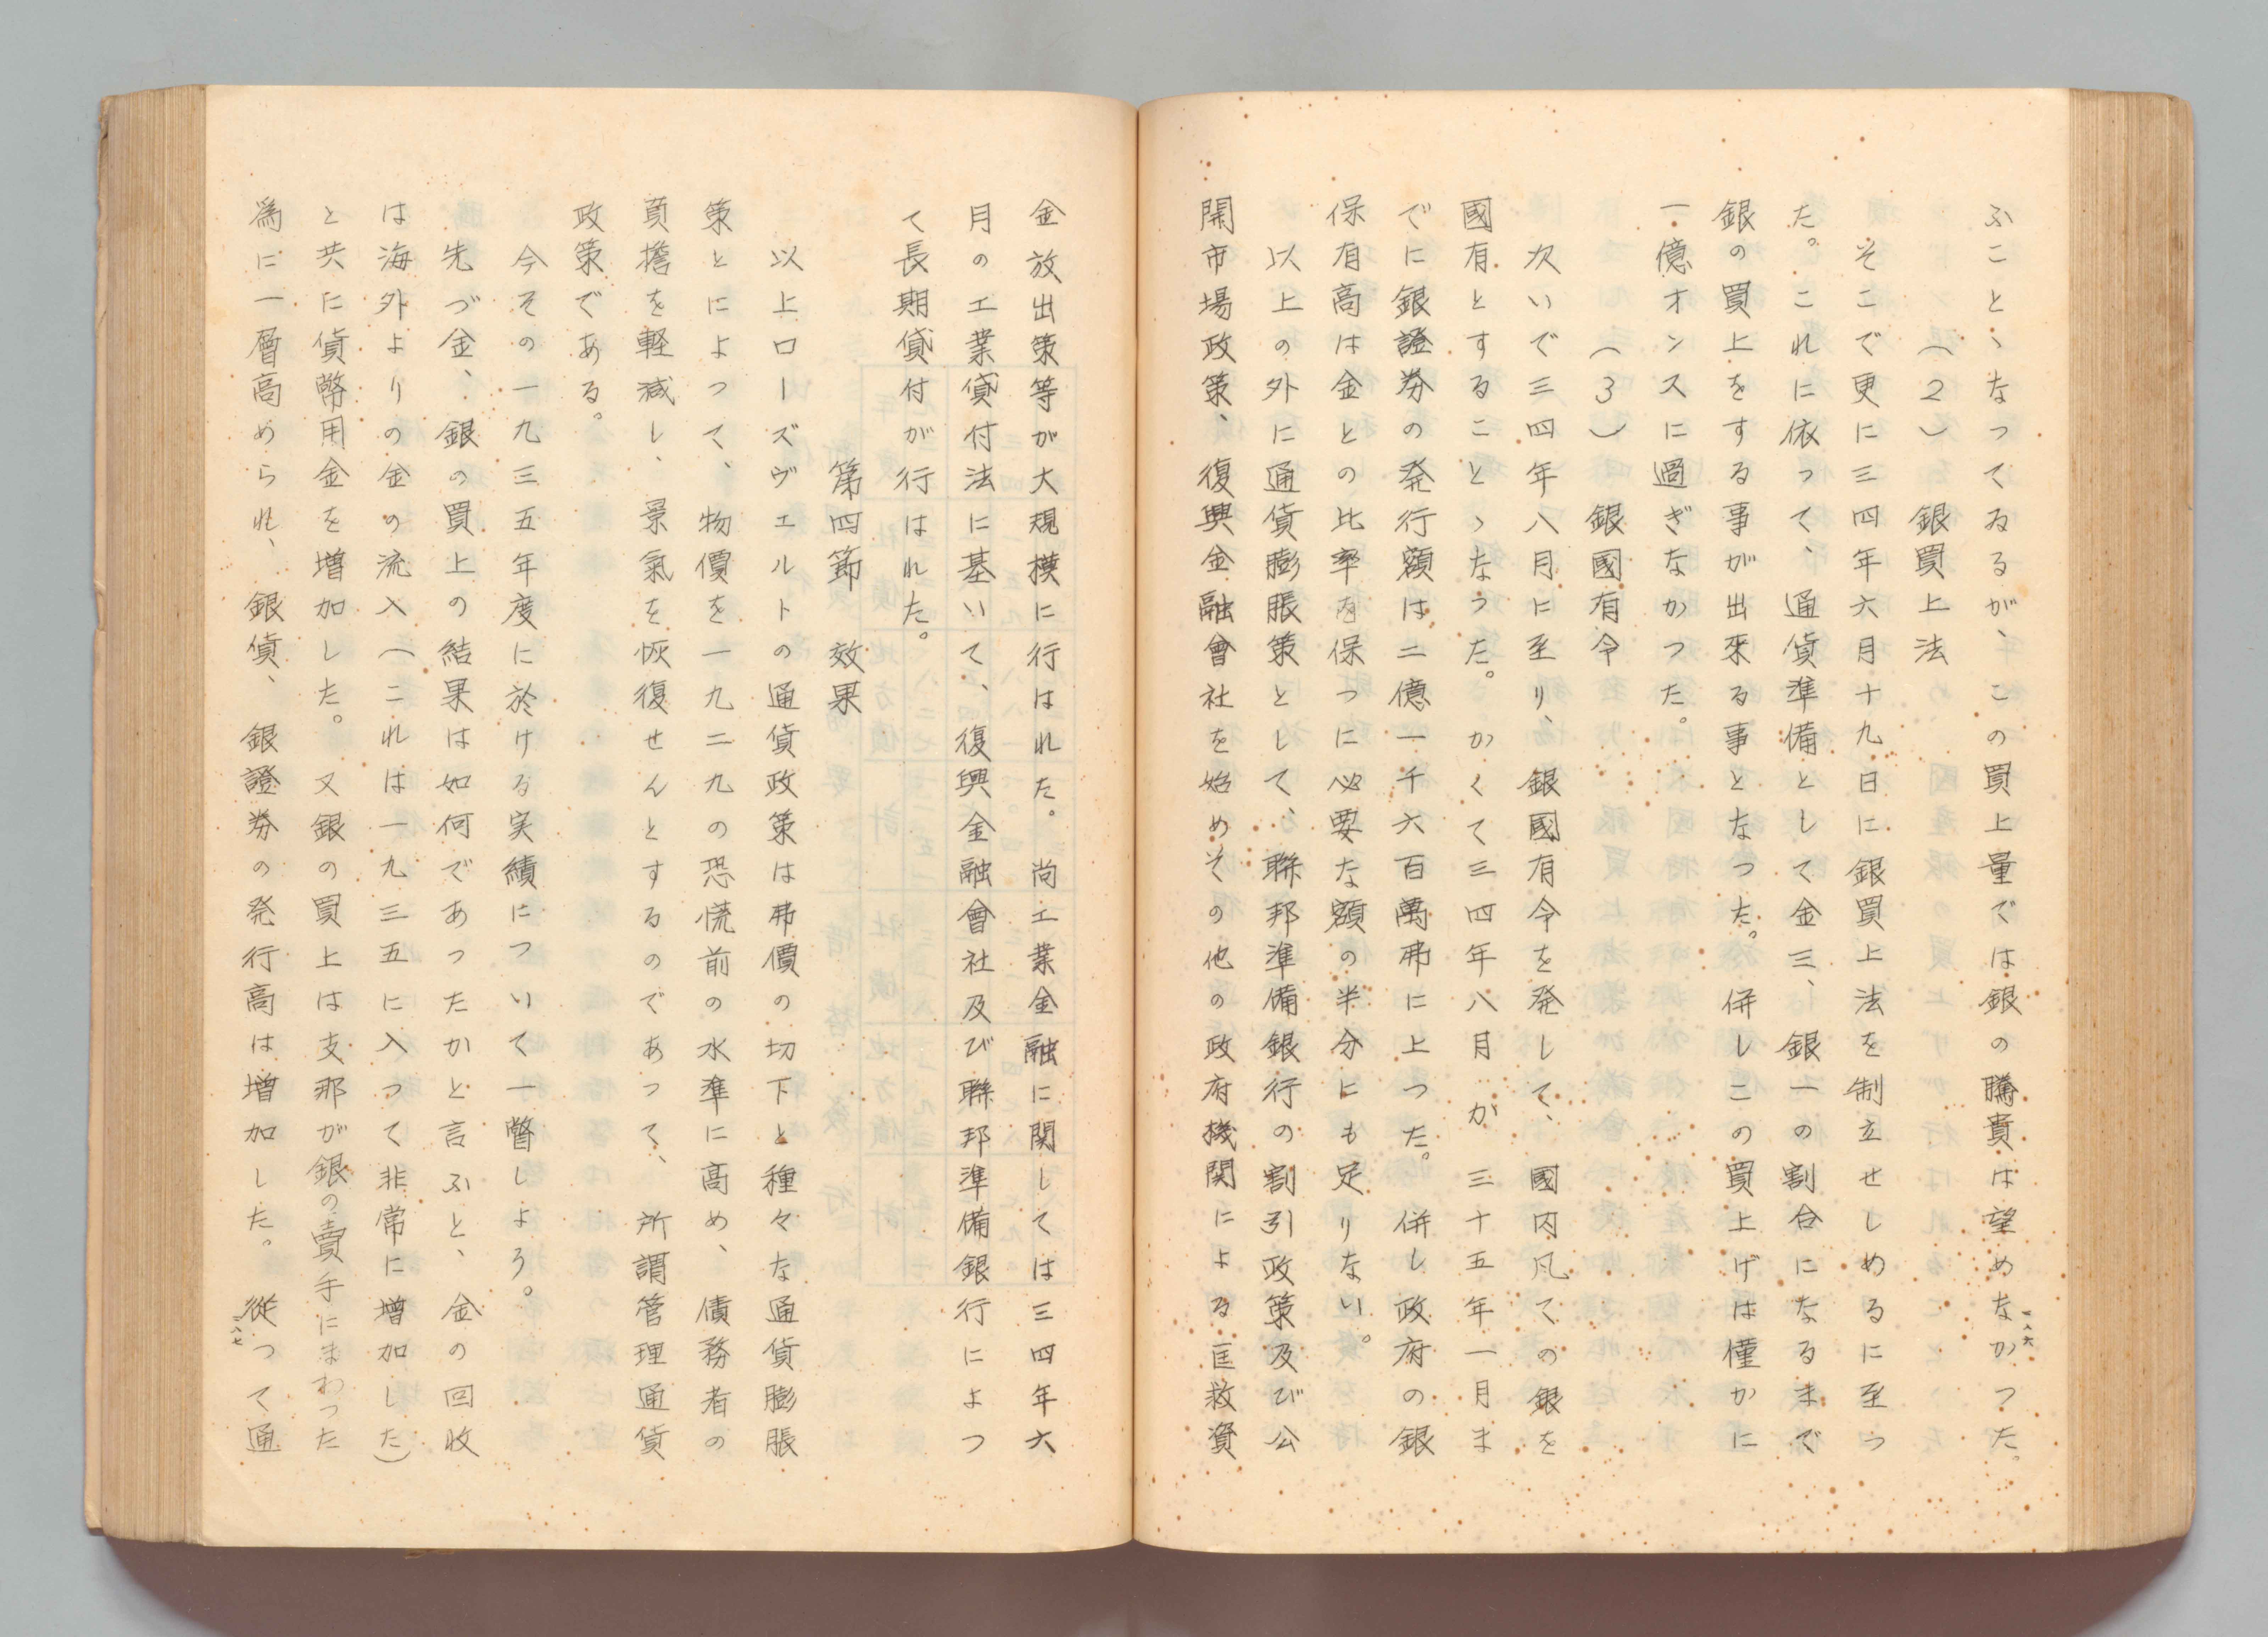 ふことゝなってゐるが、この買上量では銀の騰貴は望めなかつた。
（２）　銀買上法
そこで更に三四年六月十九日に銀買上法を制立せしめるに至っ
た。これに依って、通貨準備として金三、銀一の割合になるまで
銀の買上をする事が出来る事となつた。併しこの買上げは僅かに
一億オンスに過ぎなかつた。
（３）　銀國有令
次いで三四年八月に至り、銀國有令を発して、國内凡ての銀を
國有とすることゝなつた。かくて三四年八月が三十五年一月ま
でに銀證券の発行額は二億一千六百萬弗に上つた。併し政府の銀
保有高は金との比率を保つに必要な額の半分にも足りない。
以上の外に通貨膨脹策として、聯邦準備銀行の割引政策及び公
開市場政策、復興金融會社を始めその他の政府機関による匡救資
一八六
金放出策等が大規模に行はれた。尚工業金融に関しては三四年六
月の工業貸付法に基いて、復興金融會社及び聯邦準備銀行によつ
て長期貸付が行はれた。
第四節　效果
以上ローズヴェルトの通貨政策は弗價の切下と種々な通貨膨脹
策とによつて、物價を一九二九の恐慌前の水準に高め、債務者の
負擔を軽減し、景氣を恢復せんとするのであって、所謂管理通貨
政策である。
今その一九三五年度に於ける実績について一瞥しよう。
先づ金、銀の買上の結果は如何であつたかと言ふと、金の回收
は海外よりの金の流入（これは一九三五に入つて非常に増加した）
と共に貨幣用金を増加した。又銀の買上は支那が銀の賣手にまわつた
為に一層高められ、銀貨、銀證券の発行高は増加した。從つて通
一八七